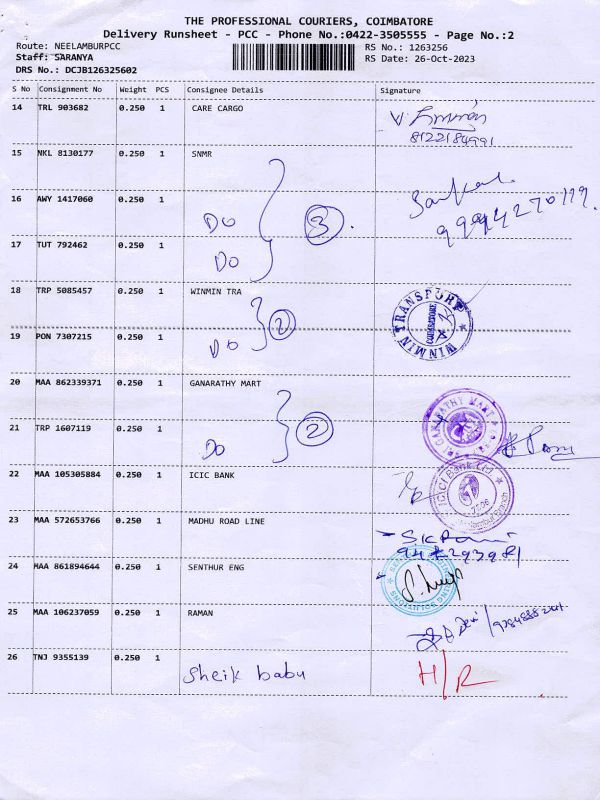 THE PROFESSIONAL COURIERS, COIMBATORE
Delivery Runsheet - PCC - Phone No.:0422-3505555 - Page No.:2
Route: NEELAMBURPCC RS No.: 1263256
Staff: SARANYA RS Date: 26-Oct-2023
DRS No.: DCJB126325602
S No Consignment No Weight PCS Consignee Details Signature
14 TRL 903682 0.250 1 CARE CARGO
8122184991
15 NKL 8130177 0.250 1 SNMR
16 AWY 1417060 0.250 1 DO 3
9994270119
17 TUT 792462 0.250 1 DO
18 TRP 5085457 0.250 1 WINMIN TRA 2 WINMIN TRANSPORT COIMBATORE
19 PON 7307215 0.250 1 DO
20 MAA 862339371 0.250 1 GANARATHY MART 2
21 TRP 1607119 0.250 1 DO
22 MAA 105305884 0.250 1 ICIC BANK ICICI Bank Ltd.
23 MAA 572653766 0.250 1 MADHU ROAD LINE
24 MAA 861894644 0.250 1 SENTHUR ENG
25 MAA 106237059 0.250 1 RAMAN
26 TNJ 9355139 0.250 1 Sheik babu H/R